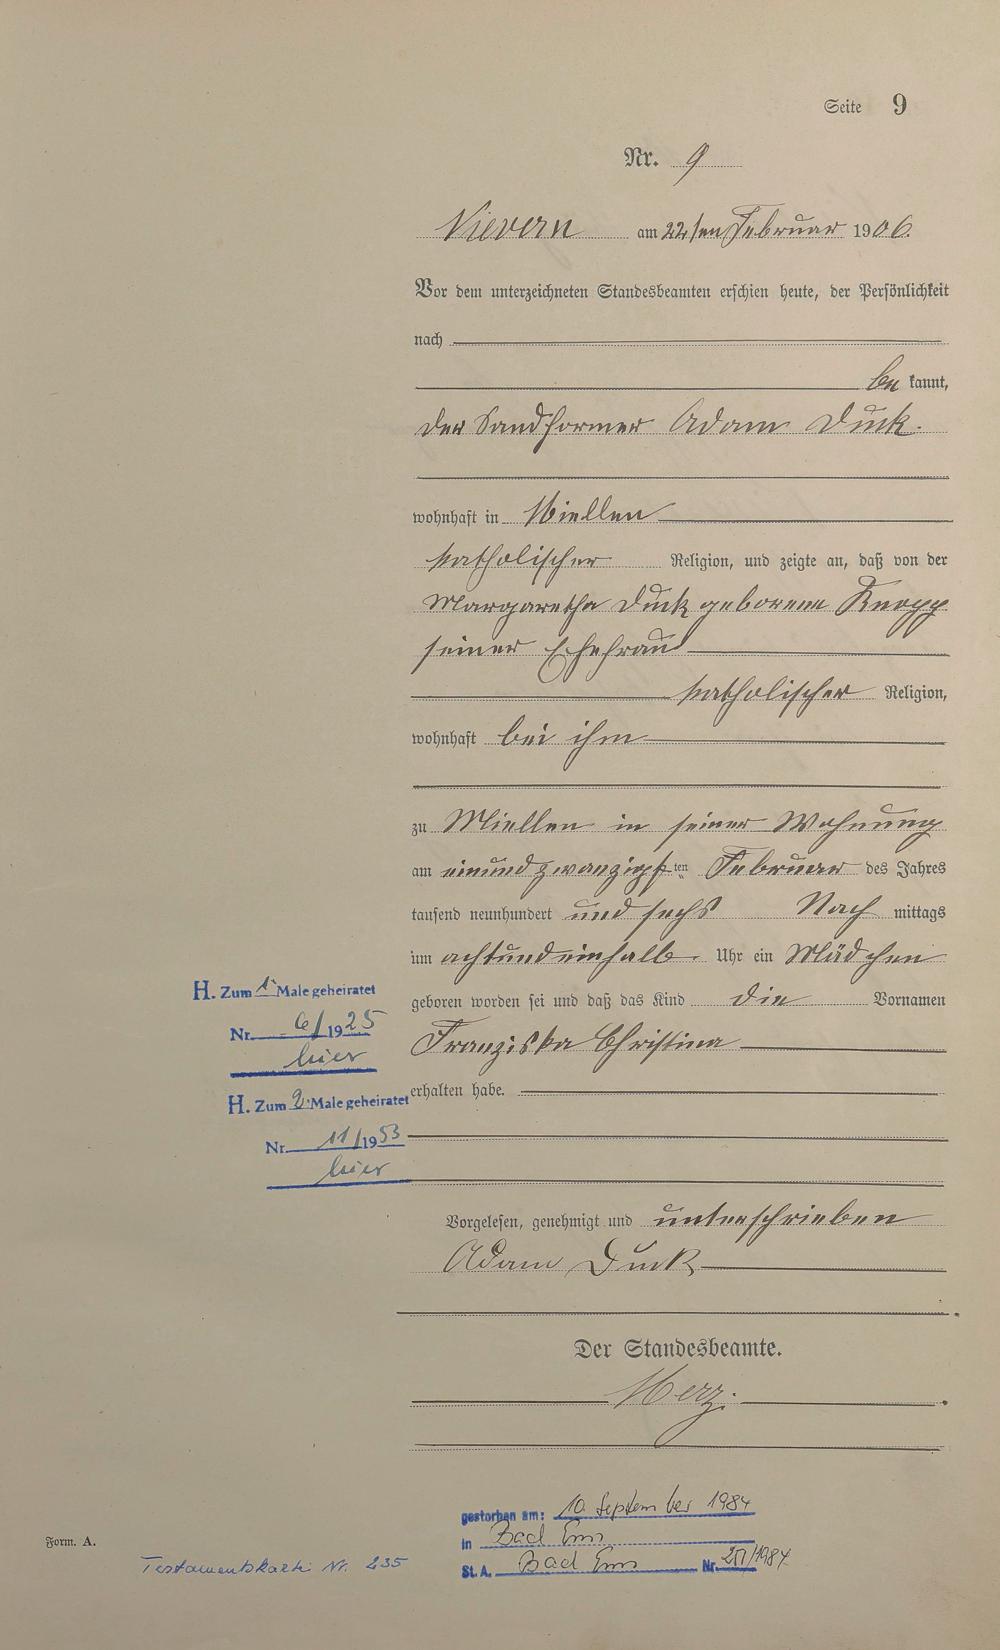 Seite 9
Nr. 9
Nievern am 22ten Februar 1906.
Vor dem unterzeichneten Standesbeamten erschien heute, der Persönlichkeit
nach
be kannt,
der Sandformer Adam Duck.
wohnhaft in Miellen
katholischer Religion, und zeigte an, daß von der
Margaretha Duck geborene Knopp
seiner Ehefrau
katholischer Religion,
wohnhaft bei ihm
zu Miellen in seiner Wohnung
am einundzwanzigsten Februar des Jahres
tausend neunhundert und sechs Nach mittags
um achtundeinhalb Uhr ein Mädchen
geboren worden sei und daß das Kind die Vornamen
Franziska Christina
erhalten habe.
H. Zum 1. Male geheiratet
Nr. 6/1925
hier
H. Zum 2. Male geheiratet
Nr. 11/1953
hier
Vorgelesen, genehmigt und unterschrieben
Adam Duck
Der Standesbeamte.
Merz.
gestorben am: 10. September 1984
in Bad Ems
St. A. Bad Ems Nr. /1984
Form. A.
Testamentskartei Nr. 235